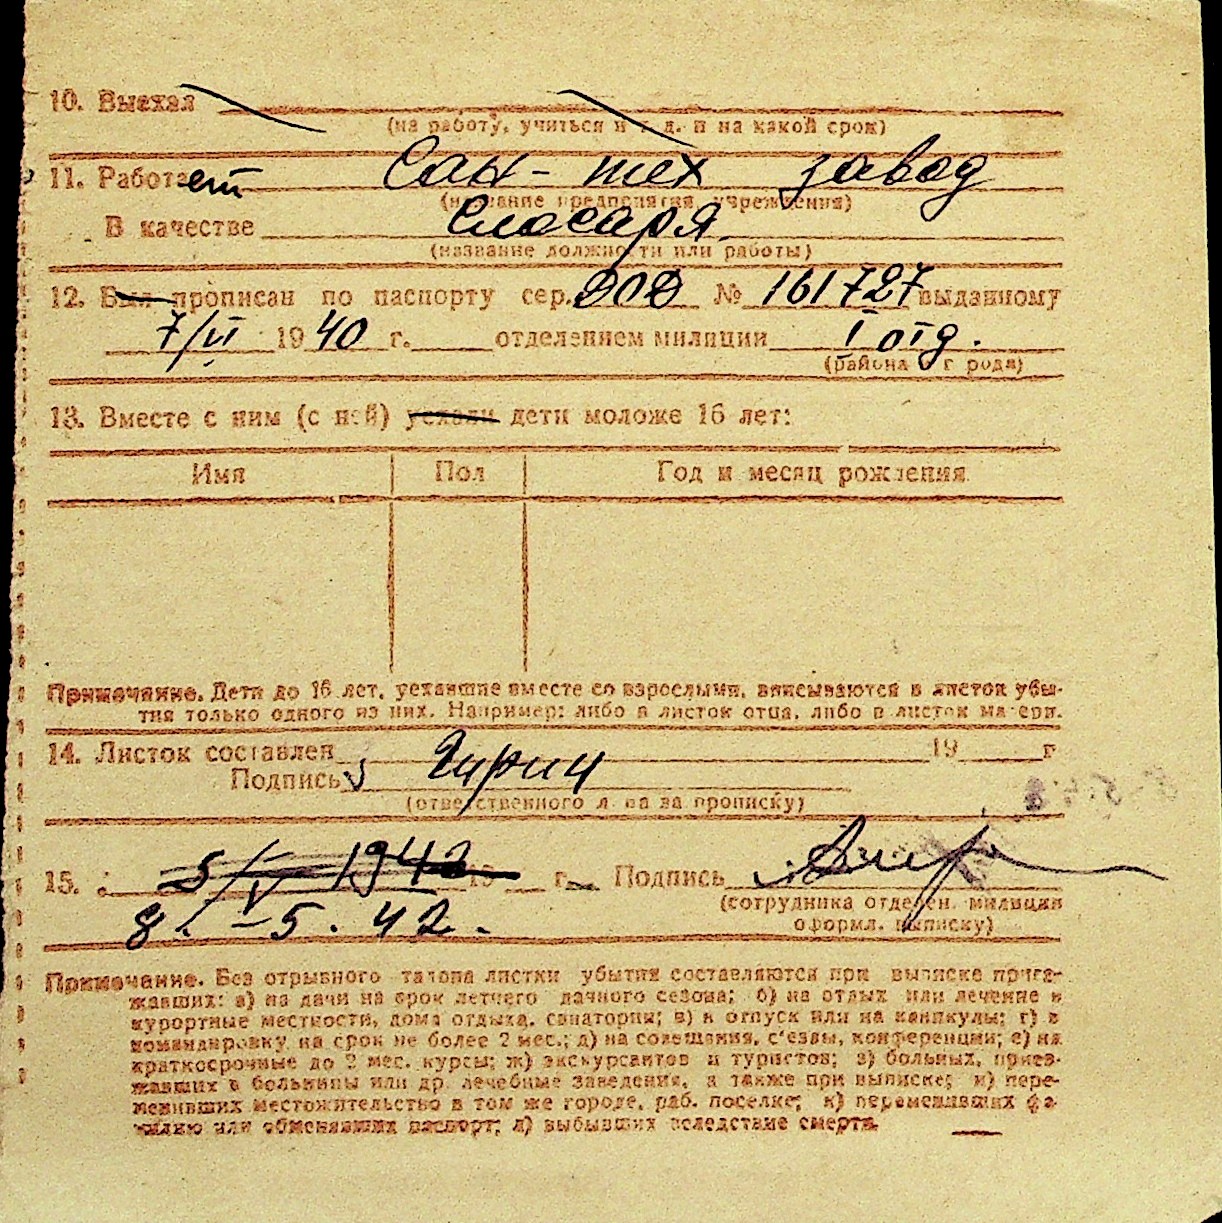 10. Выехал
(на работу, учиться и т. д. и на какой срок)
11. Работает Сан-тех завод
(название предприятия, учреждения)
В качестве Слесаря
(название должности или работы)
12. Был прописан по паспорту сер. № 161727 выданному
7/VI 1940 г. отделением милиции I отд.
(района г рода)
13. Вместе с ним (с ней) уехали дети моложе 16 лет:
Имя Пол Год и месяц рождения
Примечание. Дети до 16 лет, уехавшие вместе со взрослыми, вписываются в листок убы-
тия только одного из них. Например: либо в листок отца, либо в листок матери.
14. Листок составлен 19 г
Подпись
(ответственного л ца за прописку)
15. 5/V 1942 19 г. Подпись
(сотрудника отделен. милиции
8. -5. 42.
оформл. выписку)
Примечание. Без отрывного талона листки убытия составляются при выписке приез-
жавших: а) на дачи на срок летнего дачного сезона; б) на отдых или лечение в
курортные местности, дома отдыха, санатории; в) в отпуск или на каникулы; г) в
командировку на срок не более 2 мес.; д) на совещания, с'езды, конференции; е) на
краткосрочные до 2 мес. курсы; ж) экскурсантов и туристов; з) больных, приез-
жавших в больницы или др. лечебные заведения, а также при выписке; и) пере-
менивших местожительство в том же городе, раб. поселке; к) переменивших фа-
милию или обменявших паспорт; л) выбывших вследствие смерти.